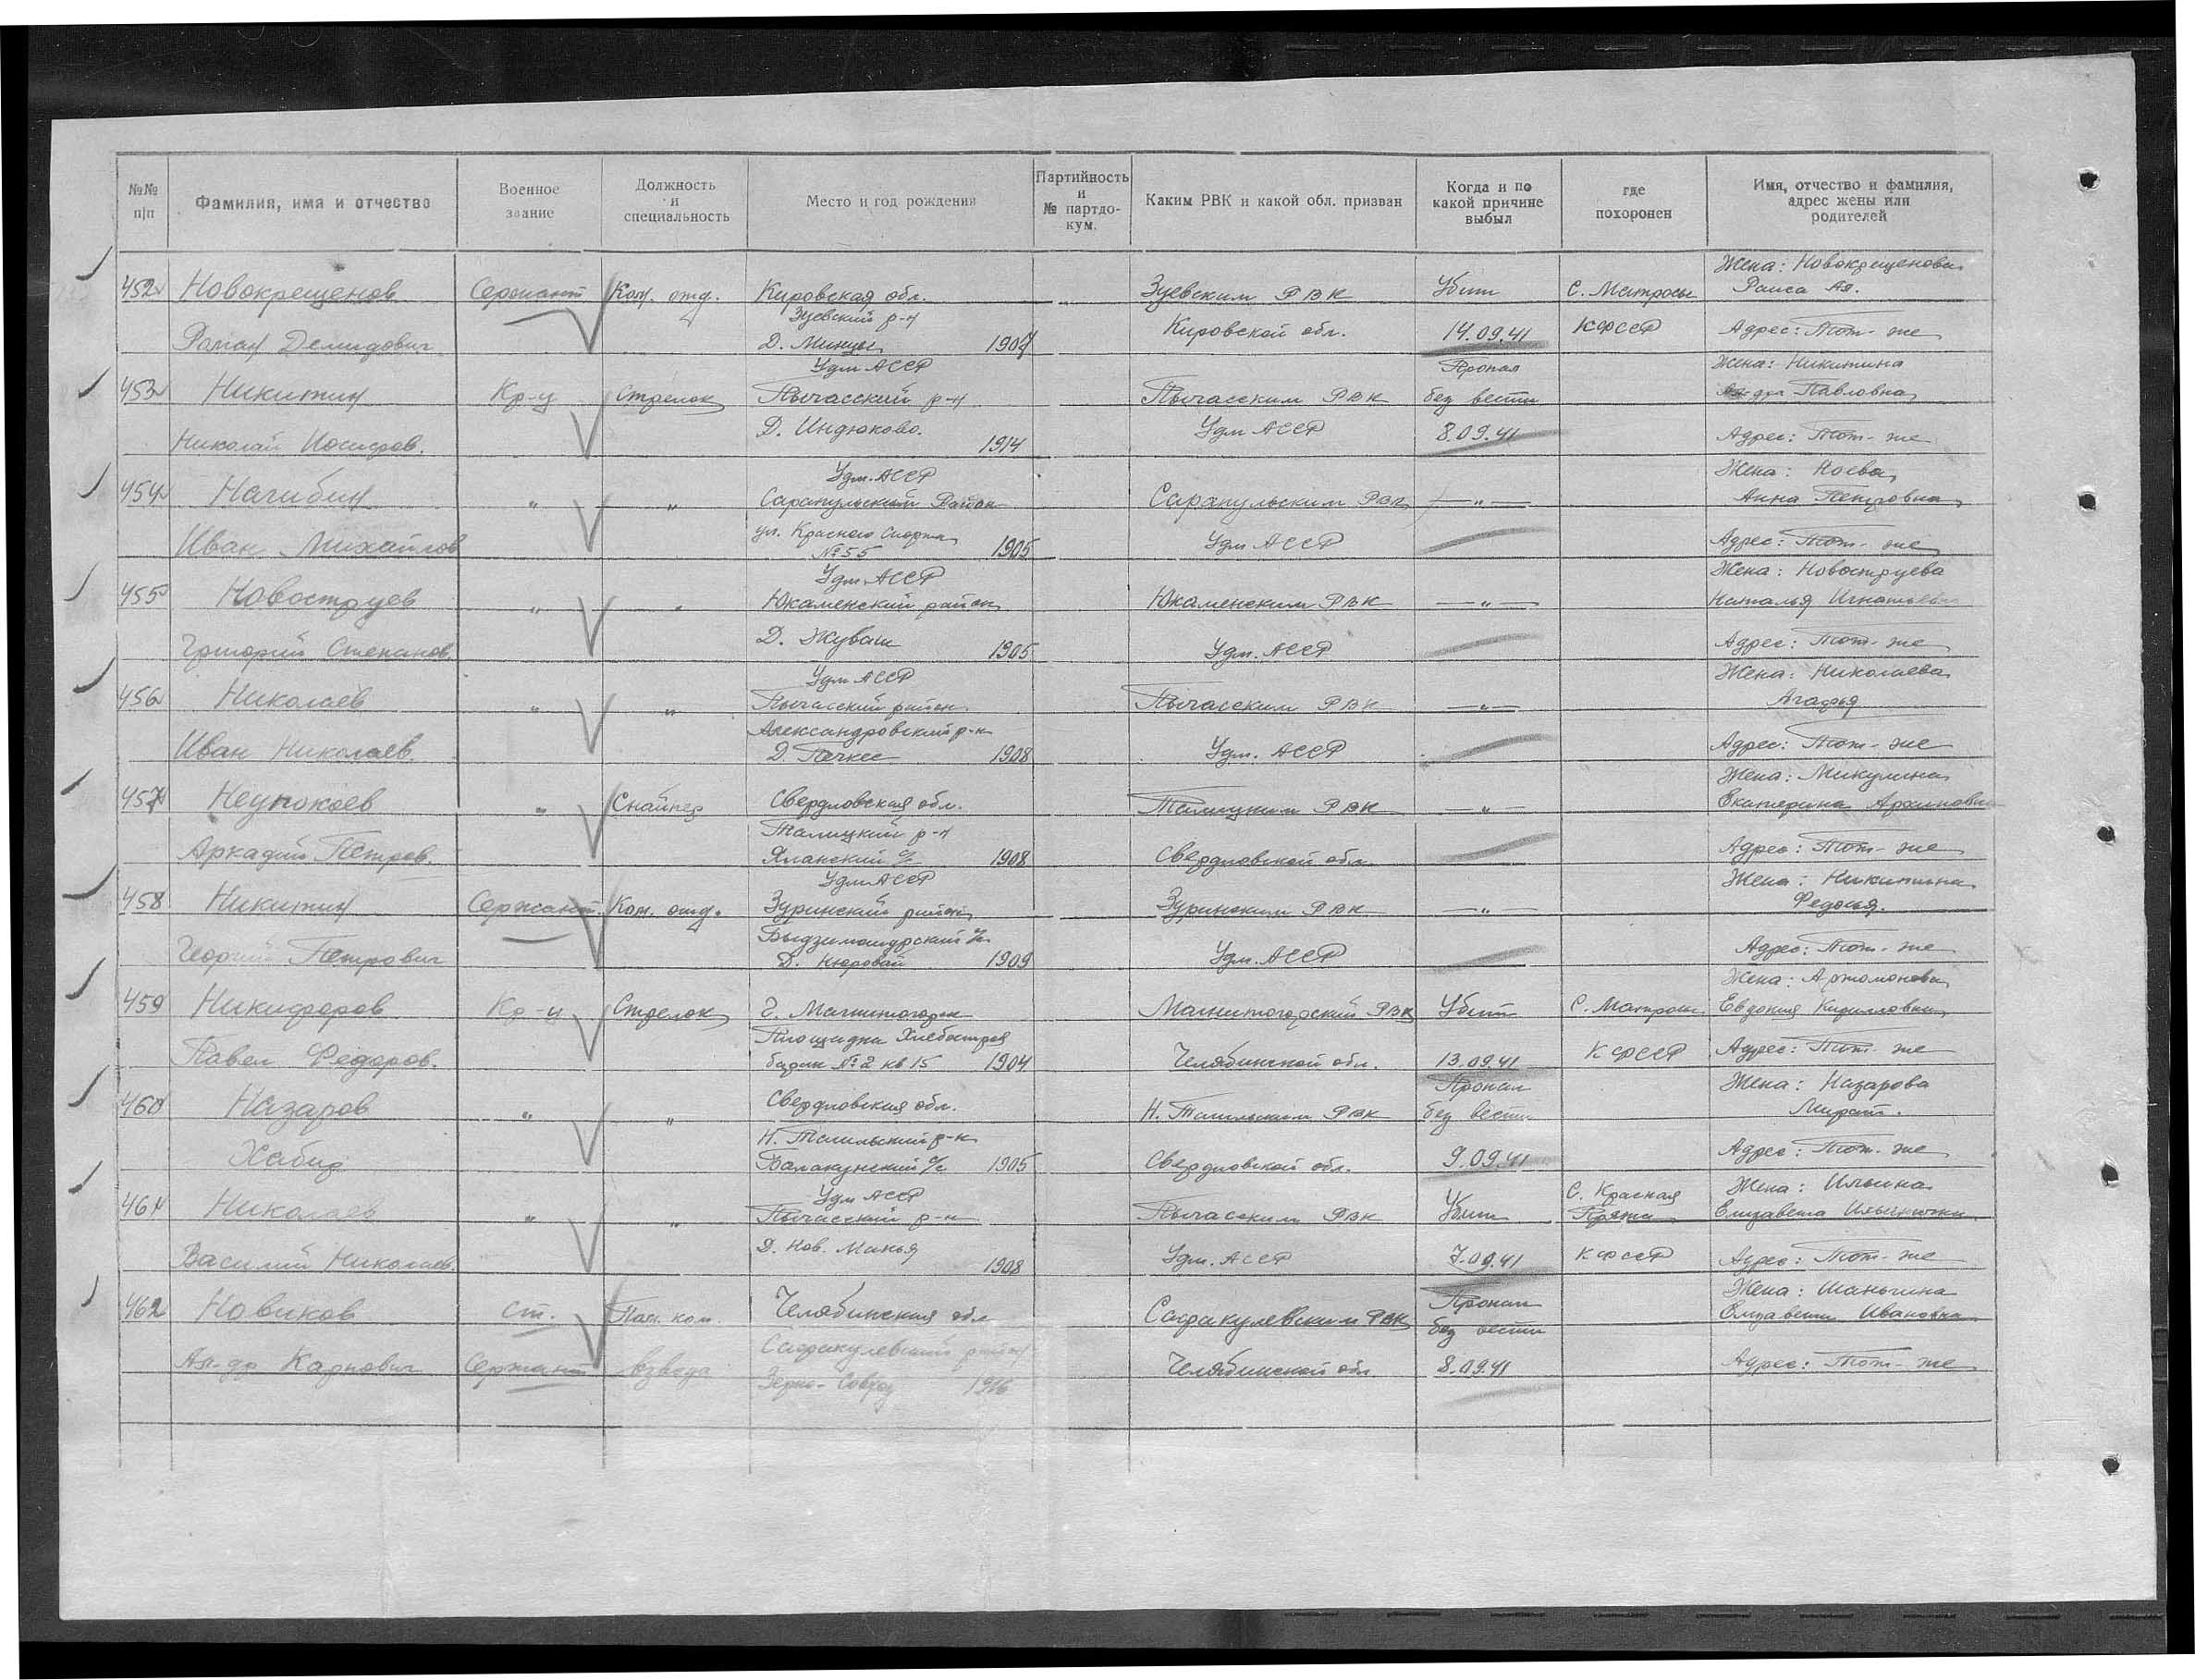 №№ п|п
Фамилия, имя и отчество
Военное звание
Должность и специальность
Место и год рождения
Партийность и № партдокум.
Каким РВК и какой обл. призван
Когда и по какой причине выбыл
где похоронен
Имя, отчество и фамилия, адрес жены или родителей
Жена: Новокрещенова
452 Новокрещенов Сержант Ком. отд. Кировская обл. Зуевским РВК Убит С. Матросы Раиса Ал.
Зуевский р-н
Роман Демидович Д. 1904 Кировской обл. 14.09.41 КФССР Адрес: Тот-же
Удм АССР Пропал Жена: Никитина
453 Никитин Кр-ц Стрелок Пычасский р-н Пычасским РВК без вести Павловна
Николай Иосифов. Д. Индюково. 1914 Удм АССР 8.09.41 Адрес: Тот-же
Удм. АССР Жена: Носва
454 Нагибин " " Сарапульский Район Сарапульским РВК —"— Анна Петровна
Иван Михайлов ул. Красного Спорта №55 1905 Удм АССР Адрес: Тот-же
Удм АССР Жена: Новоструева
455 Новоструев " " Юкаменский район Юкаменским РВК —"— Наталья Игнатьевна
Григорий Степанов Д. Жуваш 1905 Удм. АССР Адрес: Тот-же
Удм АССР Жена: Николаева
456 Николаев " " Пычасский район Пычасским РВК —"— Агафья
Александровский р-н
Иван Николаев. Д. 1908 Удм. АССР Адрес: Тот-же
Жена: Микулина
457 Неупокоев " Снайпер Свердловская обл. Талицким РВК —"— Екатерина Архиповна
Талицкий р-н
Аркадий Петров. Яланский с/с 1908 Свердловской обл. Адрес: Тот-же
Удм АССР Жена: Никитина
458 Никитин Сержант Ком. отд. Зуринский район Зуринским РВК —"— Федосья.
Георгий Петрович Д. Нюровай 1909 Удм. АССР Адрес: Тот-же
Жена: Артомонова
459 Никифоров Кр-ц Стрелок Г. Магнитогорск Магнитогорский РВК Убит С. Матросы Евдокия Кирилловна
Площадка
Павел Федоров. барак №2 кв 15 1904 Челябинской обл. 13.09.41 КФССР Адрес: Тот-же
Пропал Жена: Назарова
460 Назаров " " Свердловская обл. Н. Тагильским РВК без вести
Н. Тагильский р-н
Хабир с/с 1905 Свердловской обл. 9.09.41 Адрес: Тот-же
Удм АССР С. Красная Жена: Ильина
461 Николаев " " Пычасский р-н Пычасским РВК Убит Пряжа Елизавета
Василий Николаев Д. Нов. Монья 1908 Удм. АССР 7.09.41 КФССР Адрес: Тот-же
Жена: Шаньгина
462 Новиков Ст. Пом. ком. Челябинская обл Сафакулевским РВК Пропал без вести Елизавета Ивановна
Сафакулевский район
Ал-др Карпович Сержант взвода Зерно-Совхоз 1916 Челябинской обл. 8.09.41 Адрес: Тот-же